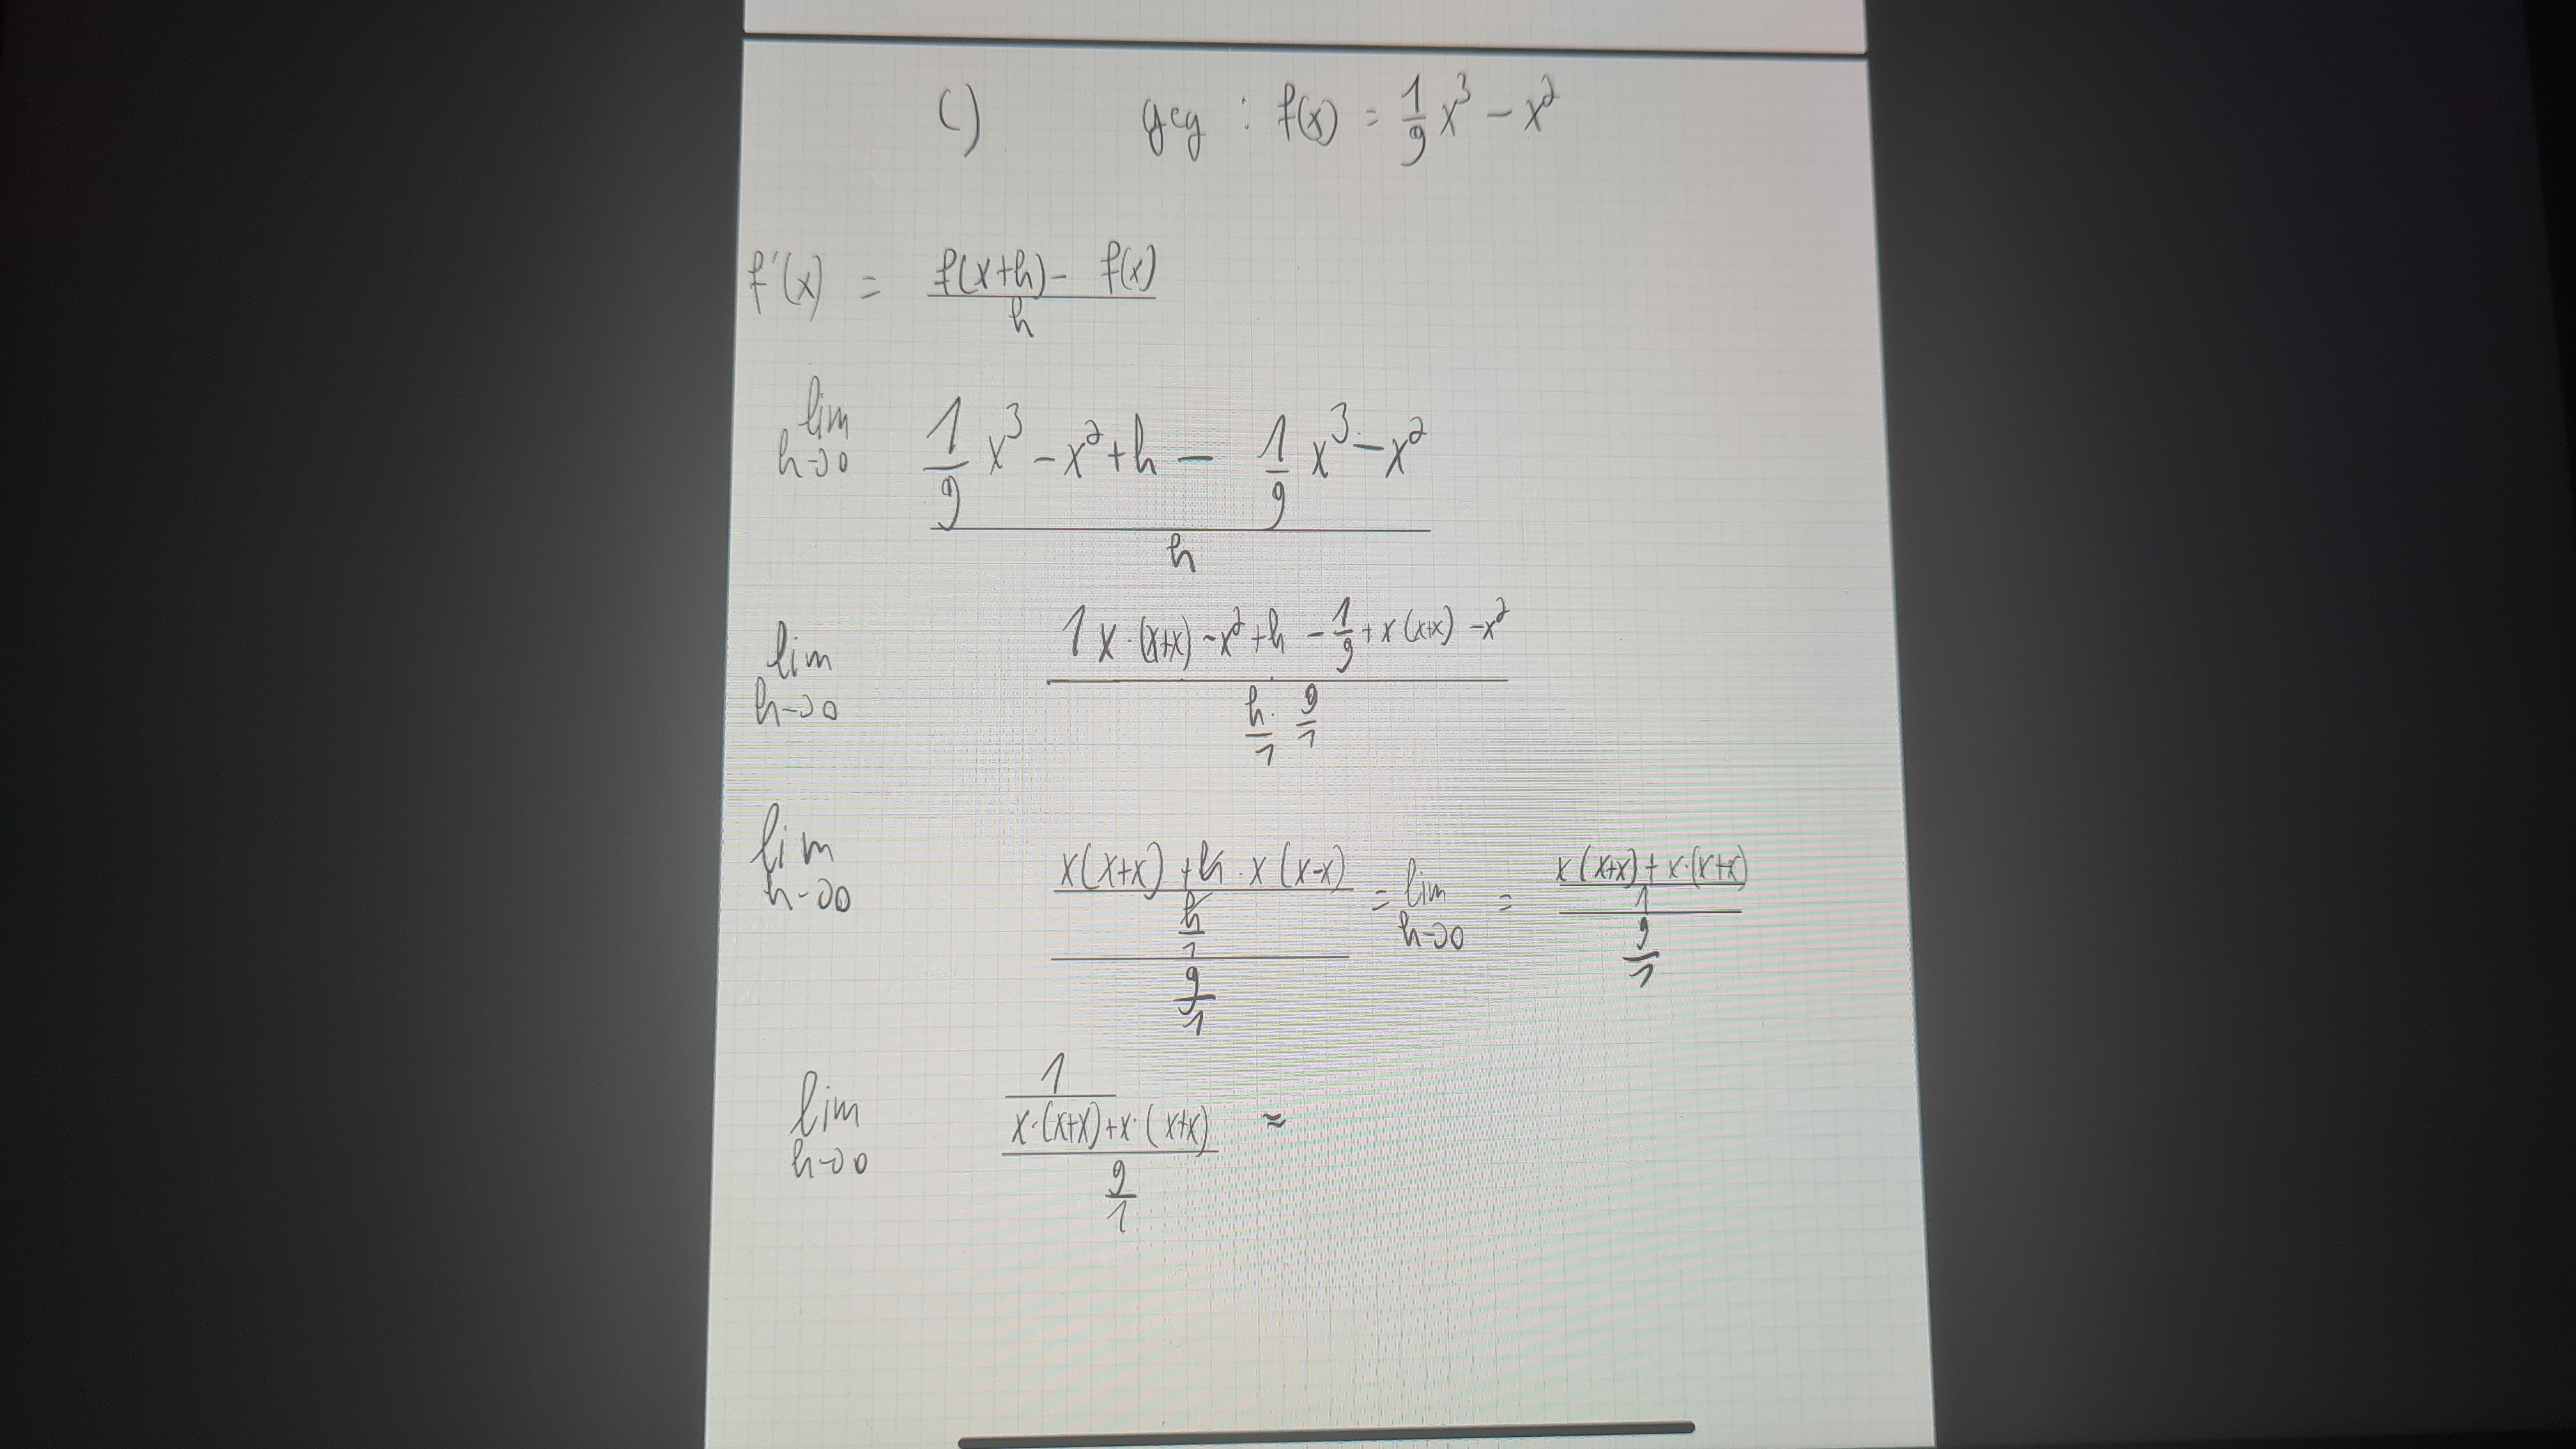 c) geg : f(x) = 1/9 x³ - x²
f'(x) = (f(x+h) - f(x))/h
lim h→0 (1/9 x³ - x² + h - 1/9 x³ - x²)/h
lim h→0 (1x·(x+x) - x² + h - 1/9 + x(x+x) - x²)/(h/1 · 9/1)
lim h→0 ((x(x+x) + h·x(x-x))/(h/1))/(9/1) = lim h→0 = ((x(x+x) + x·(x+x))/1)/(9/1)
lim h→0 (1/(x·(x+x) + x·(x+x)))/(9/1) ≈